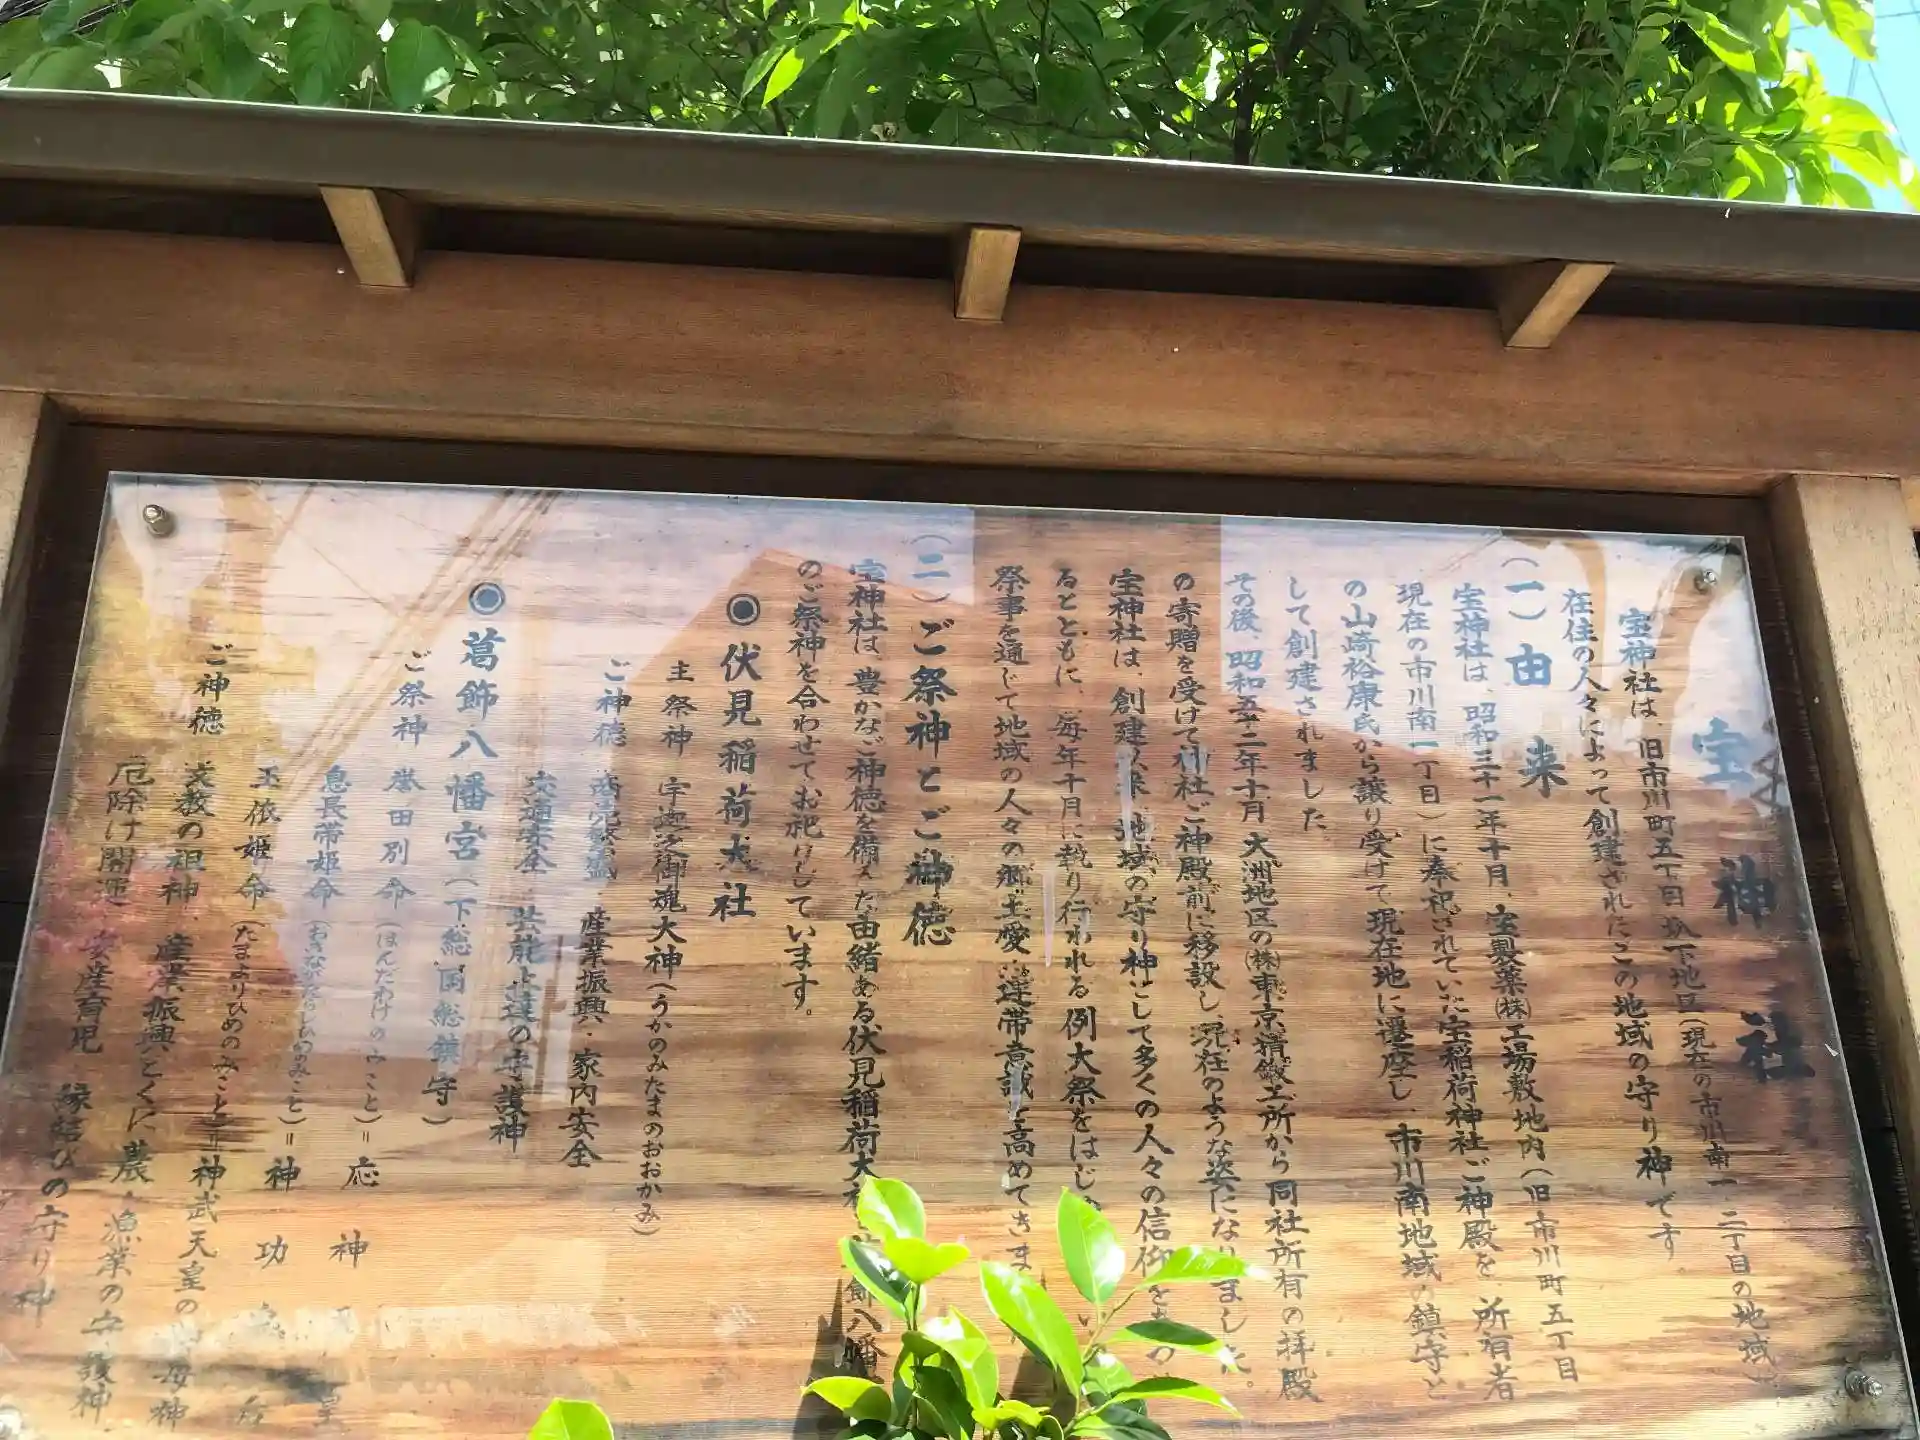 宝神社
宝神社は 旧市川町五丁目圦下地区(現在の市川南一、二丁目の地域)
在住の人々によって創建されたこの地域の守り神です。
(一)由来
宝神社は、昭和三十一年十月、宝製薬㈱工場敷地内(旧市川町五丁目
現在の市川南一丁目)に奉祀されていた宝稲荷神社ご神殿を、所有者
の山崎裕康氏から譲り受けて現在地に遷座し、市川南地域の鎮守と
して創建されました。
その後、昭和五十二年十月 大洲地区の㈱東京精鍛工所から同社所有の拝殿
の寄贈を受けて神社ご神殿前に移設し、現在のような姿になりました。
宝神社は、創建以来、地域の守り神として多くの人々の信仰を
るとともに、毎年十月に執り行われる例大祭をはじ
祭事を通じて地域の人々の郷土愛・連帯意識を高めてきま
(二)ご祭神とご神徳
宝神社は、豊かなご神徳を備えた由緒ある伏見稲荷大社 飾八幡
のご祭神を合わせてお祀りしています。
◉伏見稲荷大社
主祭神 宇迦之御魂大神(うかのみたまのおおかみ)
ご神徳 商売繁盛 産業振興・家内安全
交通安全 芸能上達の守護神
◉葛飾八幡宮(下総国総鎮守)
ご祭神 誉田別命(ほんだわけのみこと)=応神天皇
息長帯姫命(おきながたらしひめのみこと)=神功皇后
玉依姫命(たまよりひめのみこと)=神武天皇の御母神
ご神徳 文教の祖神 産業振興とくに農・漁業の守護神
厄除け開運 安産育児 縁結びの守り神